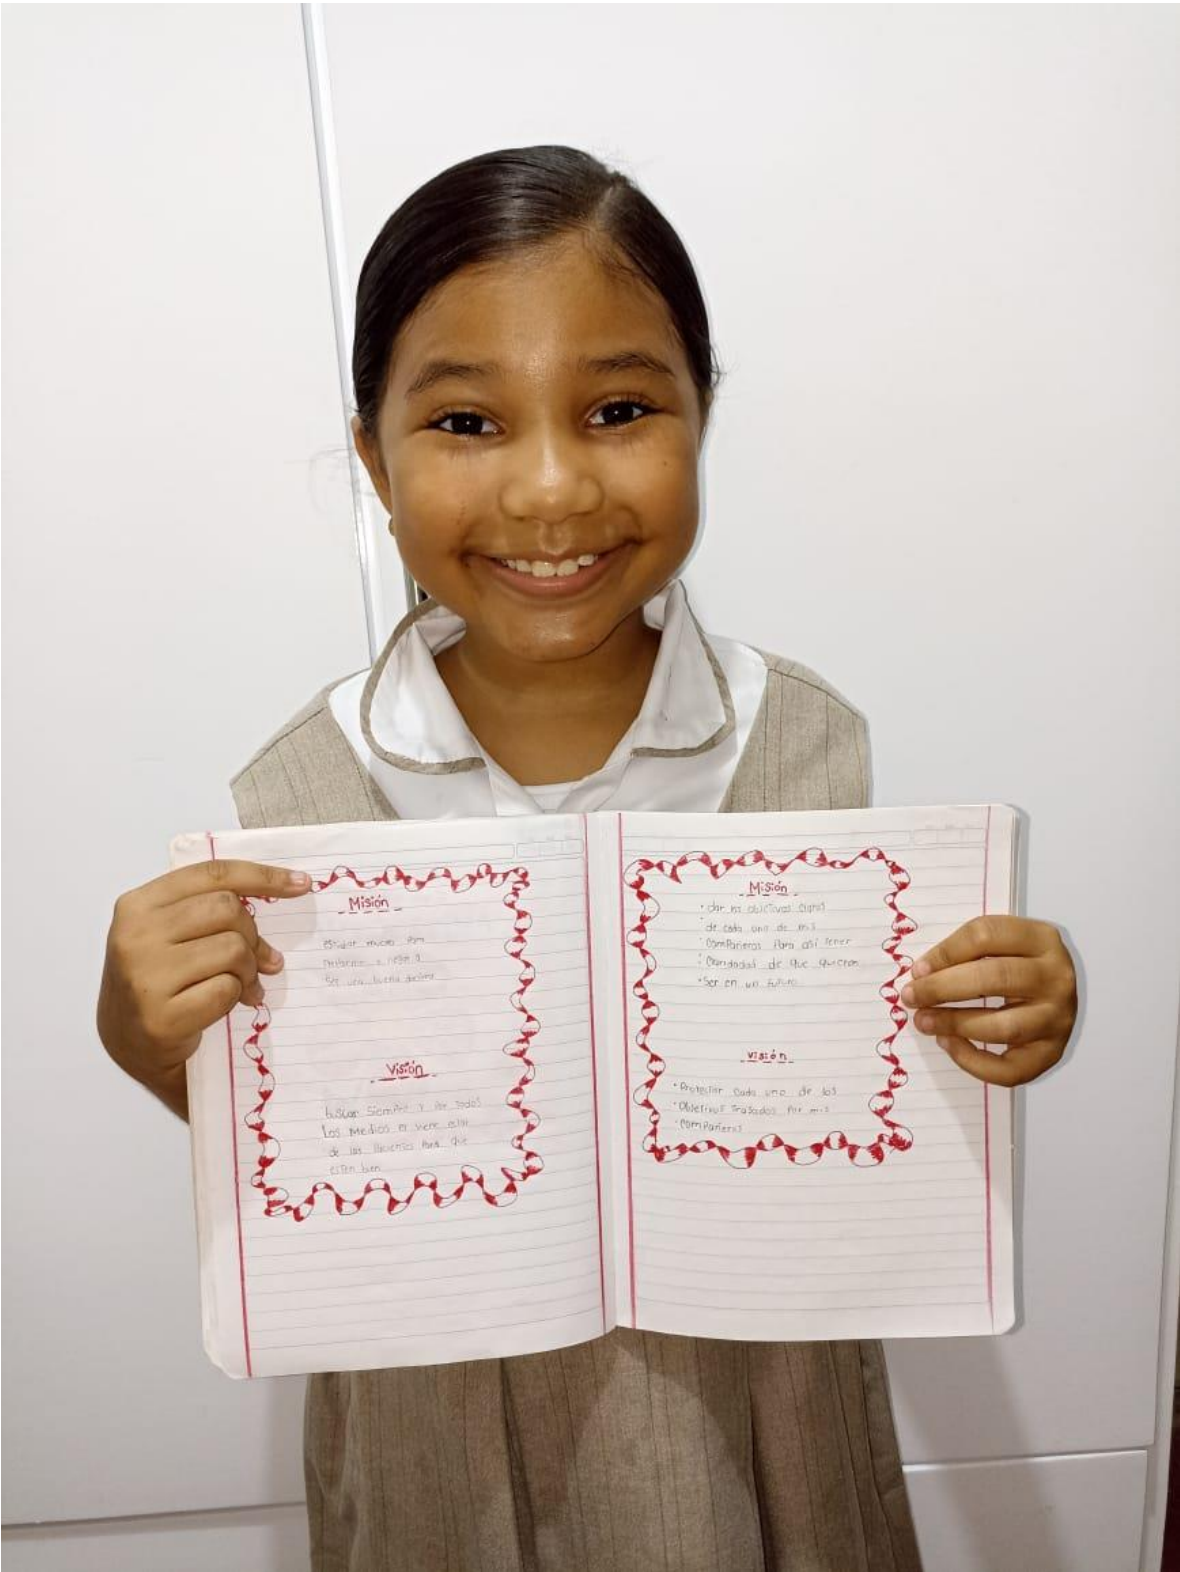 Misión
estudiar mucho Para
Prepararme y llegar a
Ser una buena doctora
Visión
buscar Siempre y Por todos
Los Medios el viene estar
de los Pacientes Para que
esten bien
Misión
• dar los objetivos claros
de cada uno de mis
• comPañeros Para así tener
• Claridadad de que quieren
• Ser en un futuro
visión
• Protectar Cada uno de los
• Objetivos Trasados Por mis
• ComPañeros